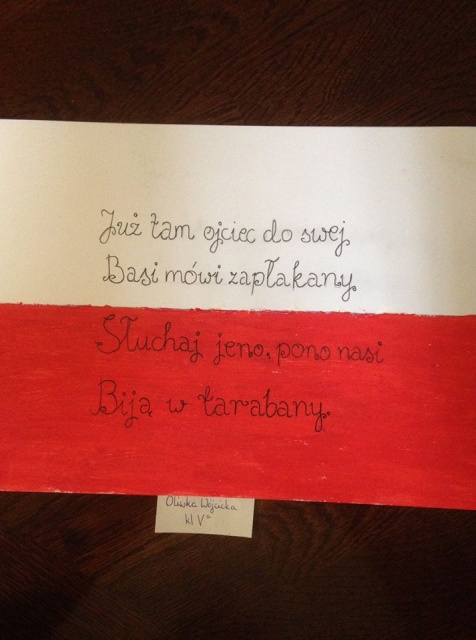 Już tam ojciec do swej
Basi mówi zapłakany.
Słuchaj jeno, pono nasi
Biją w tarabany.
Oliwka Wójcicka
kl Va